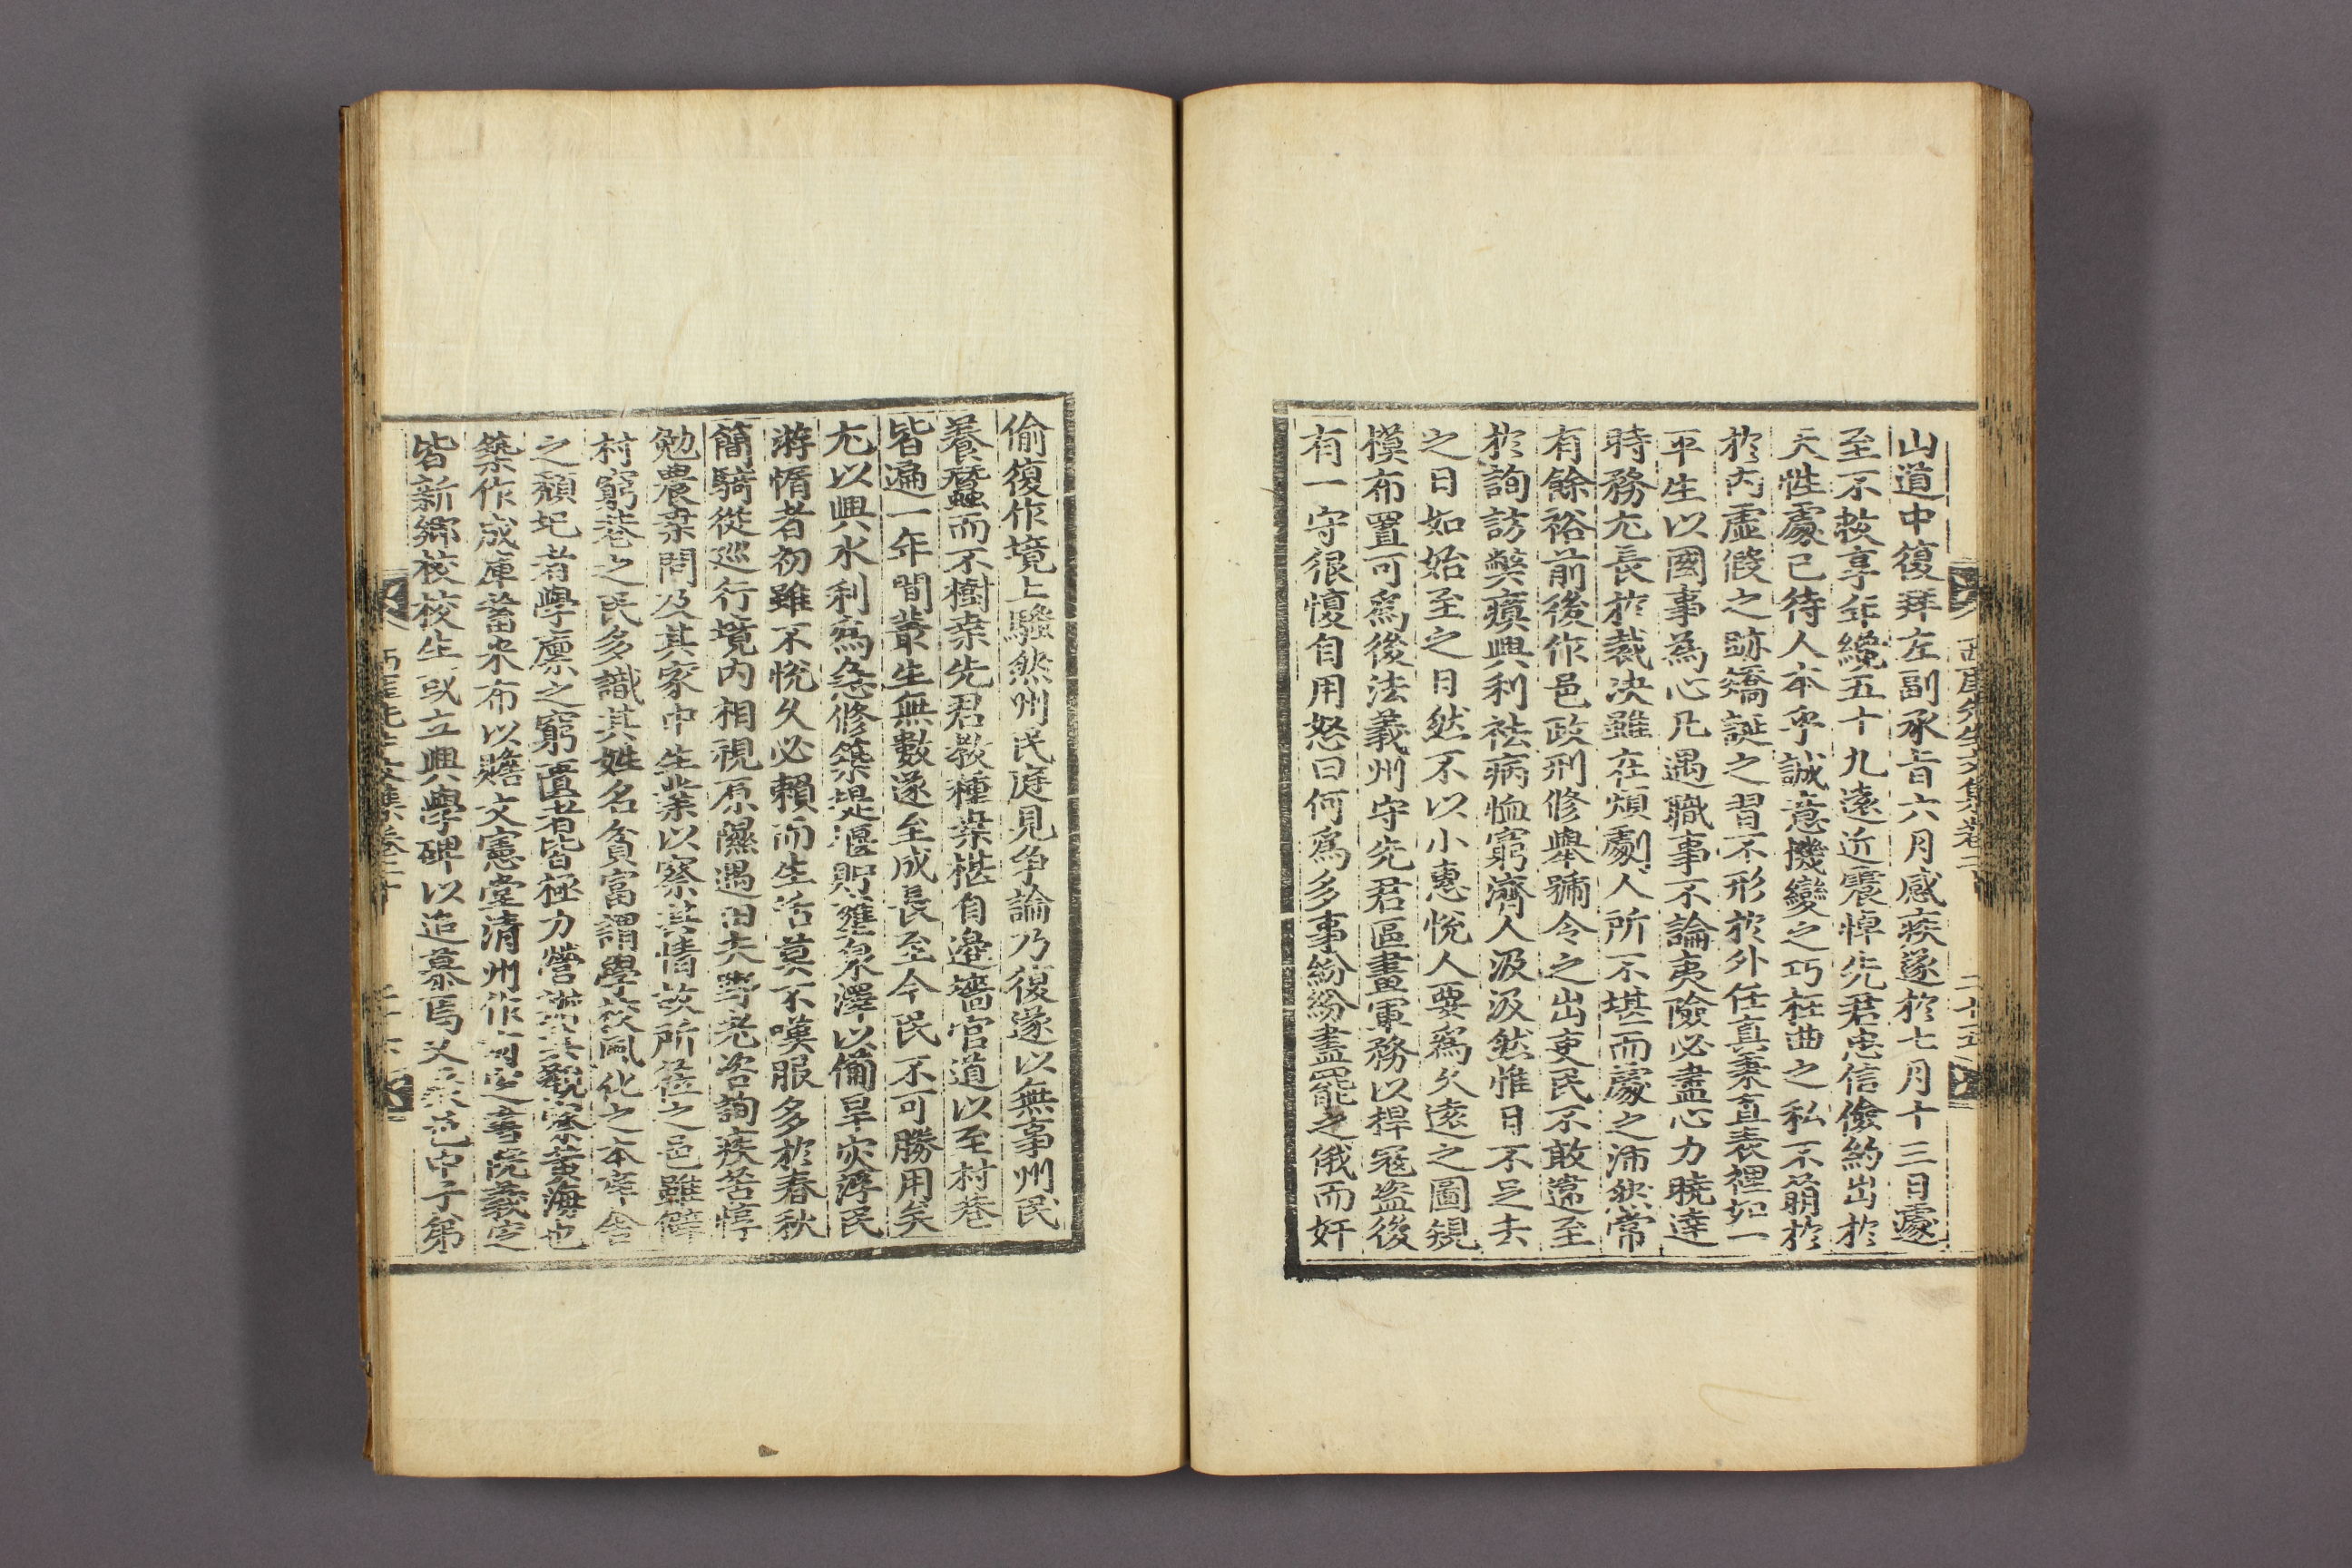 山道中復拜左副承旨六月感疾遂於七月十三日處
至不救享年纔五十九遠近震悼先君忠信儉約出於
天性處己待人本乎誠意機變之巧枉曲之私不萌於
於內虛假之跡矯誕之習不形於外任真秉直表裡如一
平生以國事為心凡遇職事不論夷險必盡心力曉達
時務尤長於裁决雖在煩劇人所不堪而處之沛然常
有餘裕前後作邑政刑修擧號令之出吏民不敢違至
於詢訪弊瘼興利祛病恤窮濟人汲汲然惟日不足去
之日如始至之日然不以小惠悅人要爲久遠之圖規
模布置可爲後法義州守先君區畫軍務以捍冦盗後
有一守很愎自用怒曰何爲多事紛紛盡罷之俄而奸
西厓先生文集卷二十
二十五
偷復作境上騷然州民庭見争論乃復遂以無事州民
養蠶而不樹桑先君教種桑椹自邉墻官道以至村巷
皆遍一年間叢生無數遂至成長至今民不可勝用矣
尤以興水利爲急修築堤堰貯雍泉澤以備旱灾浮民
游惰者初雖不悅久必賴而生活莫不嘆服多於春秋
簡騎從巡行境內相視原隰遇田夫野老咨詢疾苦惇
勉農桑問及其家中生業以察其情故所莅之邑雖僻
村窮巷之民多識其姓名貧富謂學校風化之本庠舍
之頹圮者學廩之窮匱者皆極力營\u200b其觀察黃海也
築作成庫蓄米布以贍文憲堂清州作\u200b\u200b書院義定
皆新鄉校校生或立興學碑以追慕焉又\u200b邑中子弟
西厓先生文集卷二十
二十六